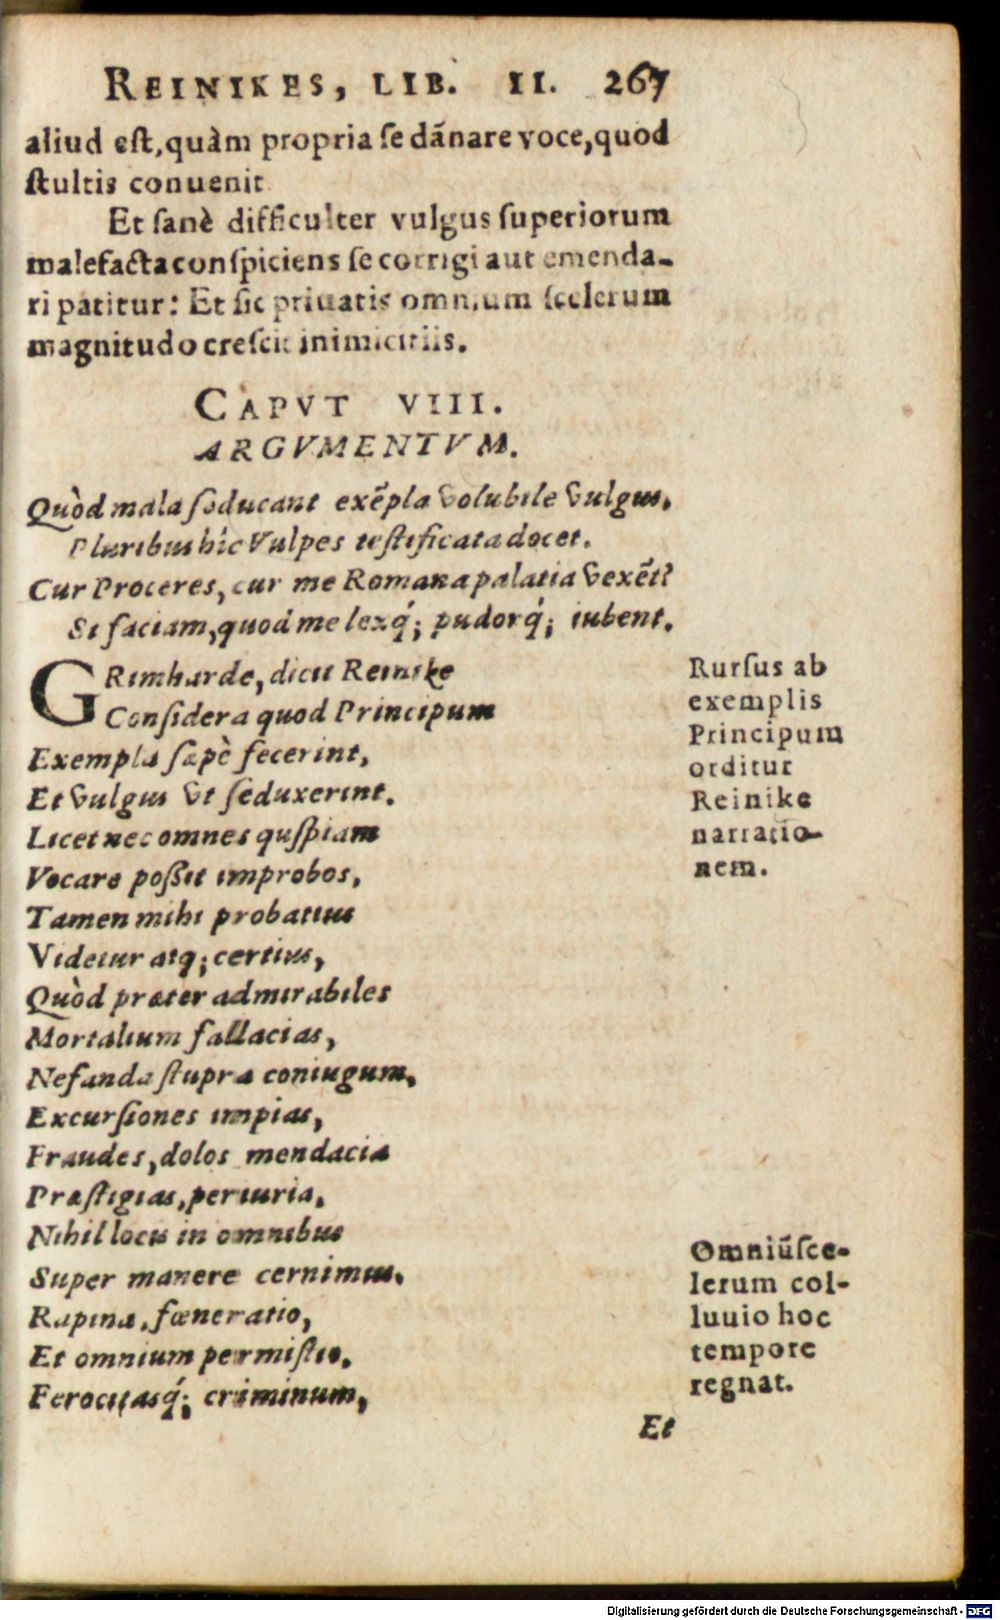 REINIKES, LIB. II. 267
aliud est, quàm propria se dãnare voce, quod
stultis conuenit
Et sanè difficulter vulgus superiorum
malefacta conspiciens se corrigi aut emenda-
ri patitur: Et sic priuatis omnium scelerum
magnitudo crescit inimicitiis.
CAPVT VIII.
ARGVMENTVM.
Quòd mala seducant exẽpla volubile vulgus,
Pluribus hîc Vulpes testificata docet.
Cur Proceres, cur me Romana palatia vexẽt?
Si faciam, quod me lexq́; pudorq́; iubent.
GRimharde, dicit Reinike
Considera quod Principum
Exempla sæpè fecerint,
Et vulgus vt seduxerint.
Licet nec omnes quspiam
Vocare possit improbos,
Tamen mihi probatius
Videtur atq; certius,
Quòd præter admirabiles
Mortalium fallacias,
Nefanda stupra coniugum,
Excursiones impias,
Fraudes, dolos mendacia
Præstigias, periuria,
Nihil locis in omnibus
Super manere cernimus.
Rapina, fœneratio,
Et omnium permistio,
Ferocitasq́; criminum,
Rursus ab
exemplis
Principum
orditur
Reinike
narratio-
nem.
Omniũ sce-
lerum col-
luuio hoc
tempore
regnat.
Et
Digitalisierung gefördert durch die Deutsche Forschungsgemeinschaft - DFG